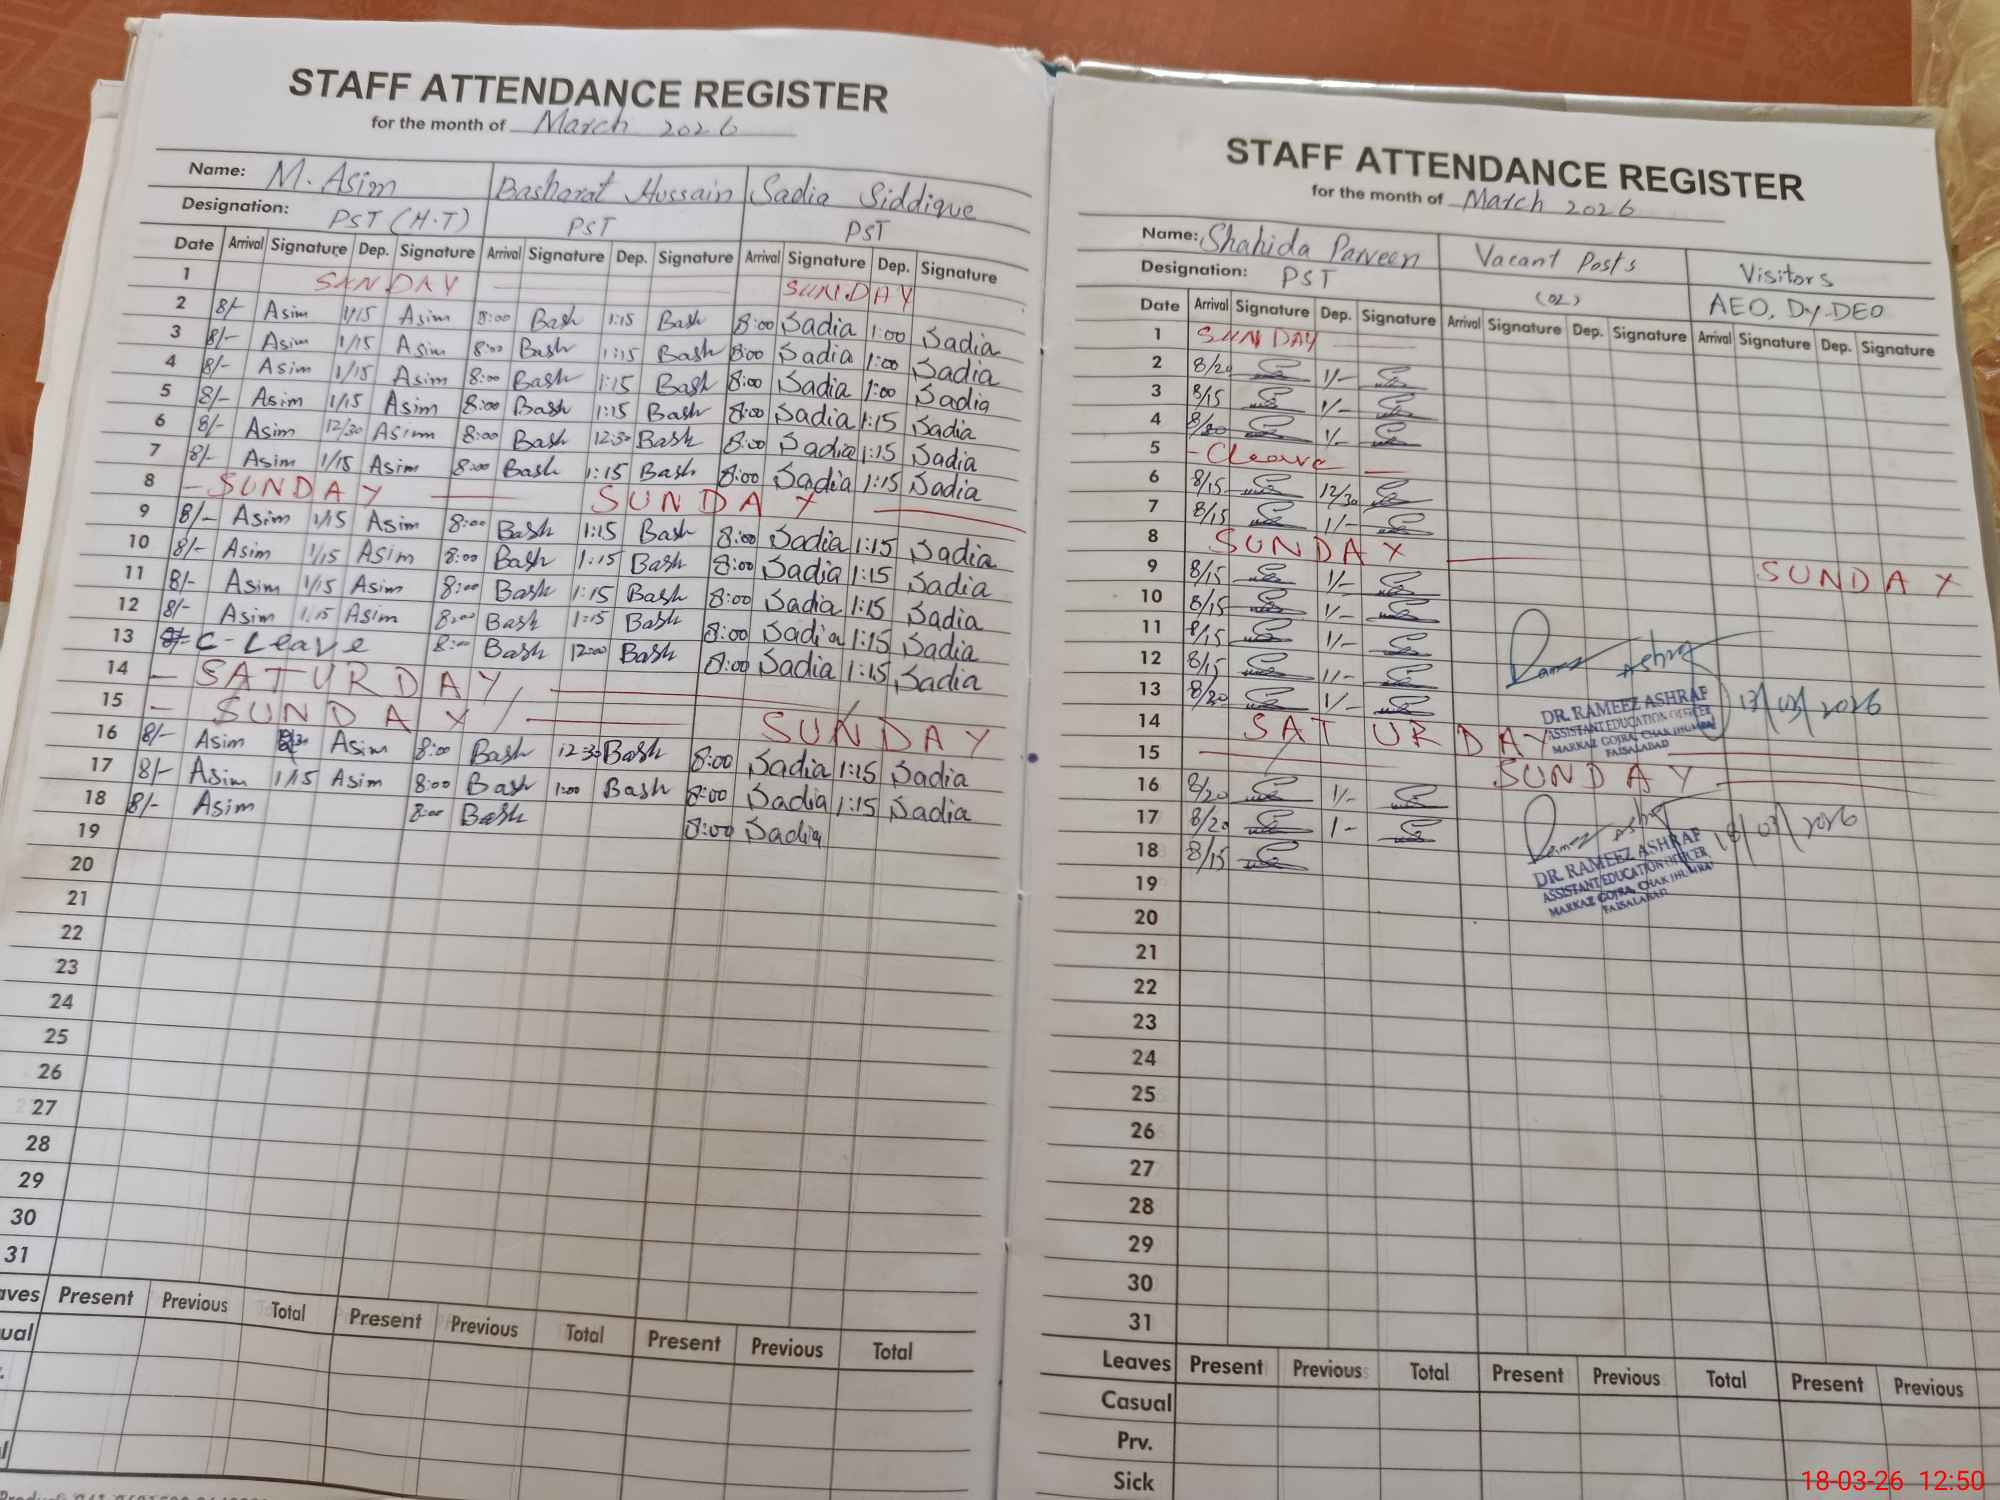 STAFF ATTENDANCE REGISTER
for the month of March 2026
Name: M. Asim Basharat Hussain Sadia Siddique
Designation: PST (H.T) PST PST
Date Arrival Signature Dep. Signature Arrival Signature Dep. Signature Arrival Signature Dep. Signature
1 SUNDAY SUNDAY
2 8/- Asim 1/15 Asim 8:00 Bash 1:15 Bash 8:00 Sadia 1:00 Sadia
3 8/- Asim 1/15 Asim 8:00 Bash 1:15 Bash 8:00 Sadia 1:00 Sadia
4 8/- Asim 1/15 Asim 8:00 Bash 1:15 Bash 8:00 Sadia 1:00 Sadia
5 8/- Asim 1/15 Asim 8:00 Bash 1:15 Bash 8:00 Sadia 1:15 Sadia
6 8/- Asim 12/30 Asim 8:00 Bash 12:30 Bash 8:00 Sadia 1:15 Sadia
7 8/- Asim 1/15 Asim 8:00 Bash 1:15 Bash 8:00 Sadia 1:15 Sadia
8 - SUNDAY SUNDAY
9 8/- Asim 1/15 Asim 8:00 Bash 1:15 Bash 8:00 Sadia 1:15 Sadia
10 8/- Asim 1/15 Asim 8:00 Bash 1:15 Bash 8:00 Sadia 1:15 Sadia
11 8/- Asim 1/15 Asim 8:00 Bash 1:15 Bash 8:00 Sadia 1:15 Sadia
12 8/- Asim 1/15 Asim 8:00 Bash 1:15 Bash 8:00 Sadia 1:15 Sadia
13 C-Leave 8:00 Bash 12:00 Bash 8:00 Sadia 1:15 Sadia
14 - SATURDAY
15 - SUNDAY SUNDAY
16 8/- Asim Asim 8:00 Bash 12:30 Bash 8:00 Sadia 1:15 Sadia
17 8/- Asim 1/15 Asim 8:00 Bash 1:00 Bash 8:00 Sadia 1:15 Sadia
18 8/- Asim 8:00 Bash 8:00 Sadia
19
20
21
22
23
24
25
26
27
28
29
30
31
aves Present Previous Total Present Previous Total Present Previous Total
ual
STAFF ATTENDANCE REGISTER
for the month of March 2026
Name: Shahida Parveen Vacant Posts Visitors
Designation: PST (02) AEO, Dy-DEO
Date Arrival Signature Dep. Signature Arrival Signature Dep. Signature Arrival Signature Dep. Signature
1 SUNDAY
2 8/20 1/-
3 8/15 1/-
4 1/-
5 - Cleave -
6 8/15 12/30
7 8/15 1/-
8 SUNDAY SUNDAY
9 8/15 1/-
10 8/15 1/-
11 8/15 1/-
12 8/15 1/-
13 8/20 1/-
14 SATURDAY
15 SUNDAY
16 8/20 1/-
17 8/20 1-
18 8/15
Ashraf
13/03/2026
DR. RAMEEZ ASHRAF
ASSISTANT EDUCATION OFFICER
MARKAZ GOJRA, CHAK JHUMRA
FAISALABAD
18/03/2026
DR. RAMEEZ ASHRAF
ASSISTANT EDUCATION OFFICER
MARKAZ GOJRA, CHAK JHUMRA
FAISALABAD
19
20
21
22
23
24
25
26
27
28
29
30
31
Leaves Present Previous Total Present Previous Total Present Previous
Casual
Prv.
Sick
18-03-26 12:50